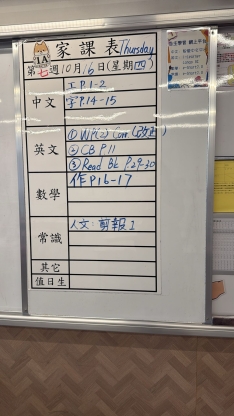 家課表 Thursday
1A
第七週10月16日(星期四)
中文
工P.1-2
字P.14-15
英文
① WP(2) Corr (改正)
② CB P.11
③ Read Bk P.29-30
數學
作P.16-17
常識
人文: 剪報1
其它
值日生